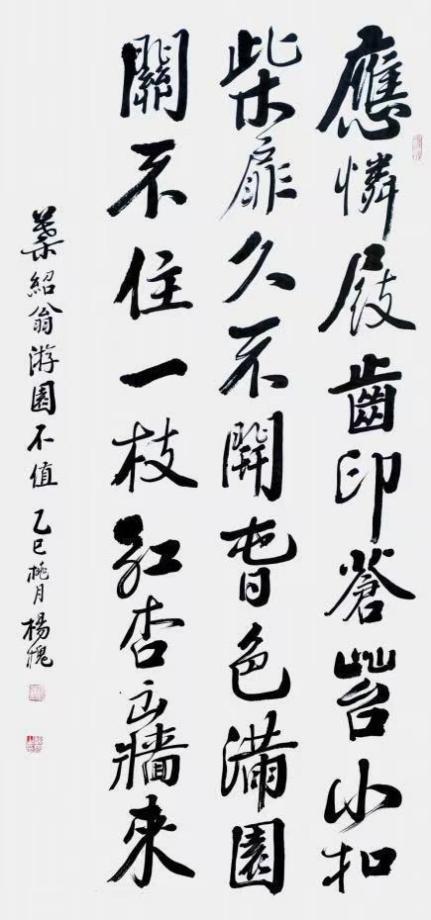 應憐屐齒印蒼苔小扣
柴扉久不開旾色滿園
關不住一枝紅杏出牆來
葉紹翁游園不值 乙巳桃月楊